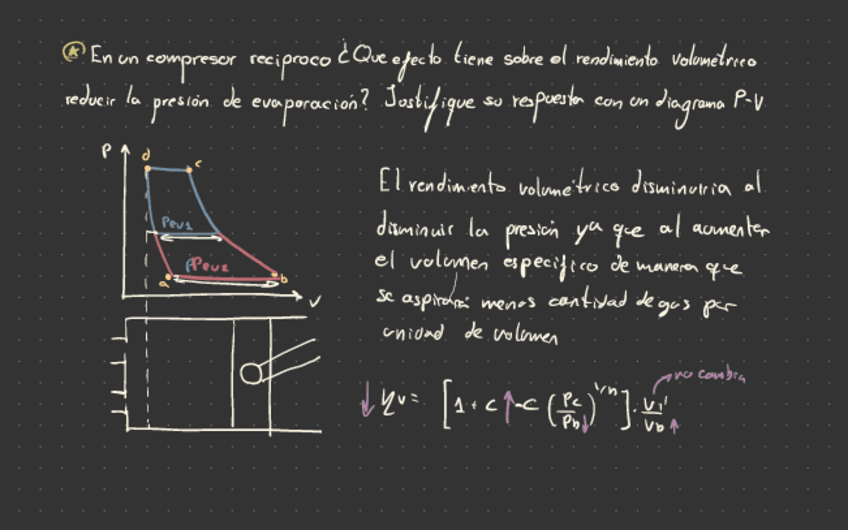 A En un compresor reciproco ¿Que efecto tiene sobre el rendimiento volumétrico
reducir la presión de evaporación? Justifique su respuesta con un diagrama P-V
P
d
c
Pev1
Pev2
a
b
V
El rendimiento volumétrico disminuiria al
disminuir la presión ya que al aumenter
el volumen especifico de manera que
se aspirara menos cantidad de gas por
unidad de volumen
no cambia
↓ ηv = [1 + C ↑ - C (Pc/Pb↓)^1/n] · v1'/vb ↑